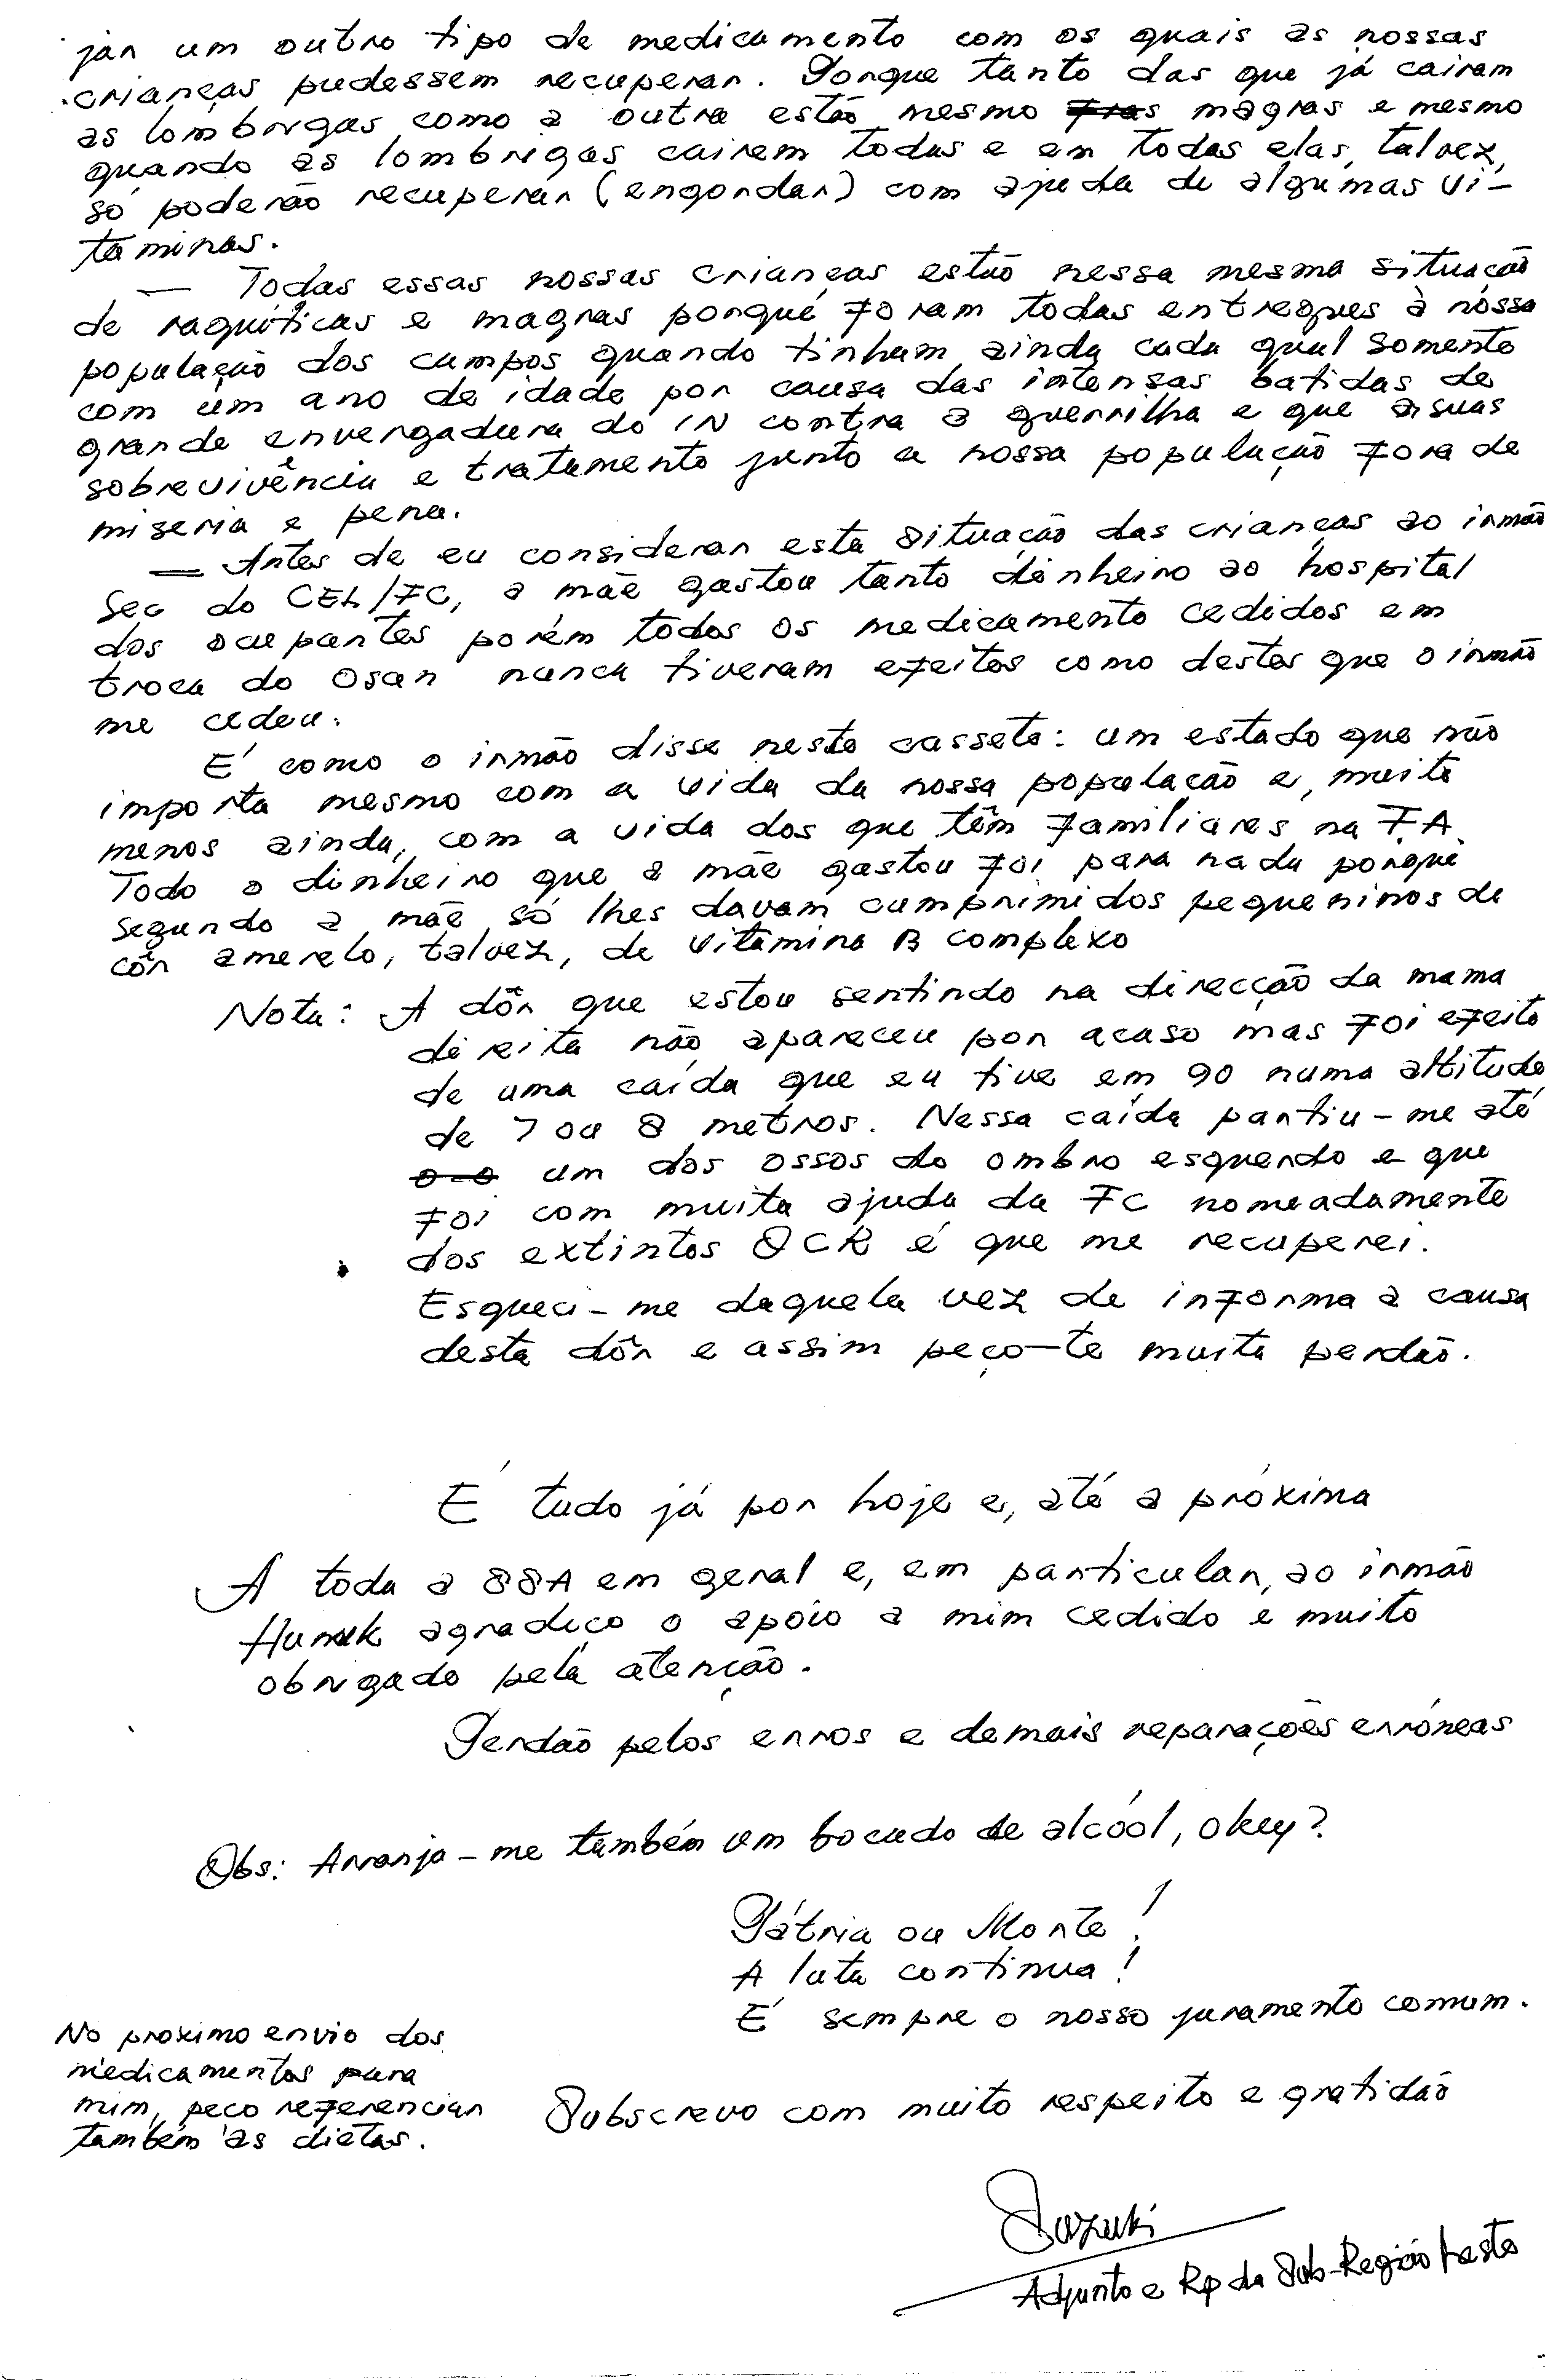 jar um outro tipo de medicamento com os quais as nossas
crianças pudessem recuperar. Porque tanto das que já cairam
as lombrigas como a outra estão mesmo magras e mesmo
quando as lombrigas cairem todas e em todas elas, talvez,
só poderão recuperar (engordar) com ajuda de algumas vi-
taminas.
— Todas essas nossas crianças estão nessa mesma situação
de raquíticas e magras porque foram todas entregues à nossa
população dos campos quando tinham ainda cada qual somente
com um ano de idade por causa das intensas batidas de
grande envergadura do IN contra a guerrilha e que a suas
sobrevivência e tratamento junto a nossa população fora de
miseria e pena.
— Antes de eu considerar esta situação das crianças ao irmão
Sec do CEL/FC, a mãe gastou tanto dinheiro ao hospital
dos ocupantes porém todos os medicamento cedidos em
troca do Osan nunca tiveram efeitos como destes que o irmão
me cedeu.
É como o irmão disse neste cassete: um estado que não
importa mesmo com a vida da nossa população e, muito
menos ainda, com a vida dos que têm familiares na FA.
Todo o dinheiro que a mãe gastou foi para nada porque
segundo a mãe só lhes davam cumprimidos pequeninos de
côr amerelo, talvez, de vitamina B complexo
Nota: A dôr que estou sentindo na direcção da mama
direita não apareceu por acaso mas foi efeito
de uma caída que eu tive em 90 numa altitude
de 7 ou 8 metros. Nessa caída partiu-me até
um dos ossos do ombro esquerdo e que
foi com muita ajuda da FC nomeadamente
dos extintos OCR é que me recuperei.
Esqueci-me daquela vez de informa a causa
desta dôr e assim peço-te muita perdão.
É tudo já por hoje e, até a próxima
A toda a SSA em geral e, em particular, ao irmão
agradeço o apoio a mim cedido e muito
obrigado pela atenção.
Perdão pelos erros e demais reparações erróneas
Obs: Arranja-me também um bocado de alcóol, okey?
Pátria ou Morte!
A luta continua!
É sempre o nosso juramento comum.
No proximo envio dos
medicamentos para
mim, peço referenciar
também as dietas.
Subscrevo com muito respeito e gratidão
Suzuki
Adjunto e Rp da Sub-Região Leste